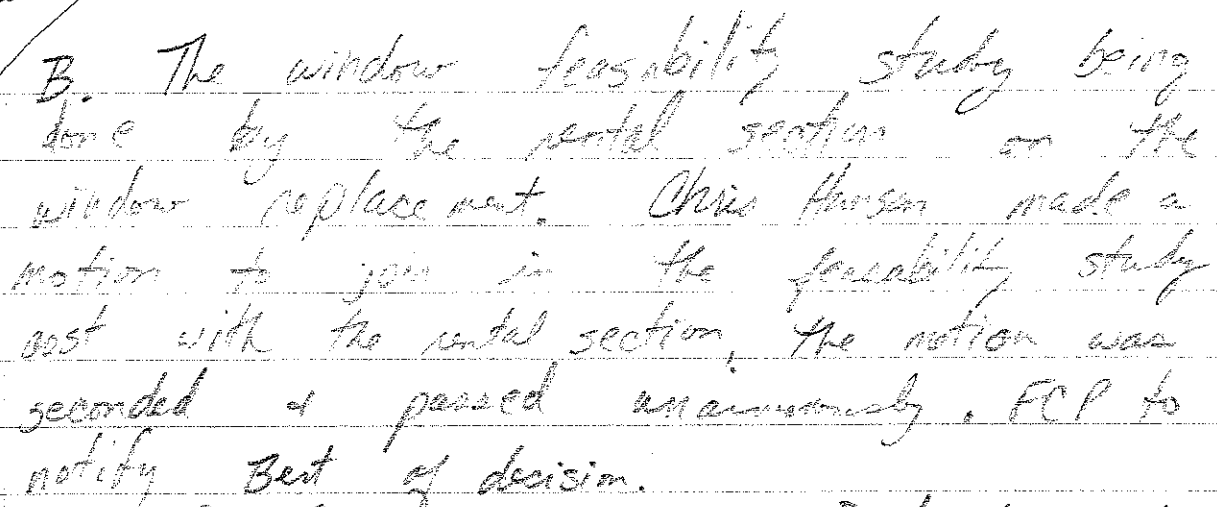 B. The window feasability study being
done by the rental section on the
window replacement. Chris Hansen made a
motion to join in the feasability study
cost with the rental section, the motion was
seconded & passed unanimously. FCP to
notify Bert of decision.